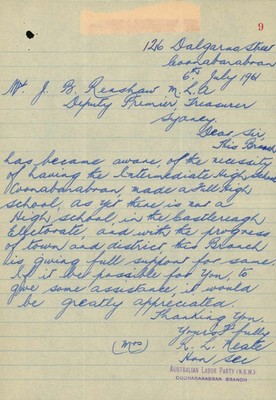 9
126 Dalgarno Street
Coonabarabran
6th July 1961
Mr J. B. Renshaw M.L.A
Deputy Premier, Treasurer
Sydney.
Dear Sir,
This Branch
has became aware, of the necessity
of having the Intermediate High School
Coonabarabran, made a Full High
school, as yet there is not a
High school in the Castlereagh
Electorate and with the progress
of town and district this Branch
is giving full support for same.
If it be possible for You, to
give some assistance, it would
be greatly appreciated.
Thanking You.
Yours F'fully
(Mrs) R. L. Neate
Hon Sec
AUSTRALIAN LABOR PARTY (N.S.W.)
COONABARABRAN BRANCH